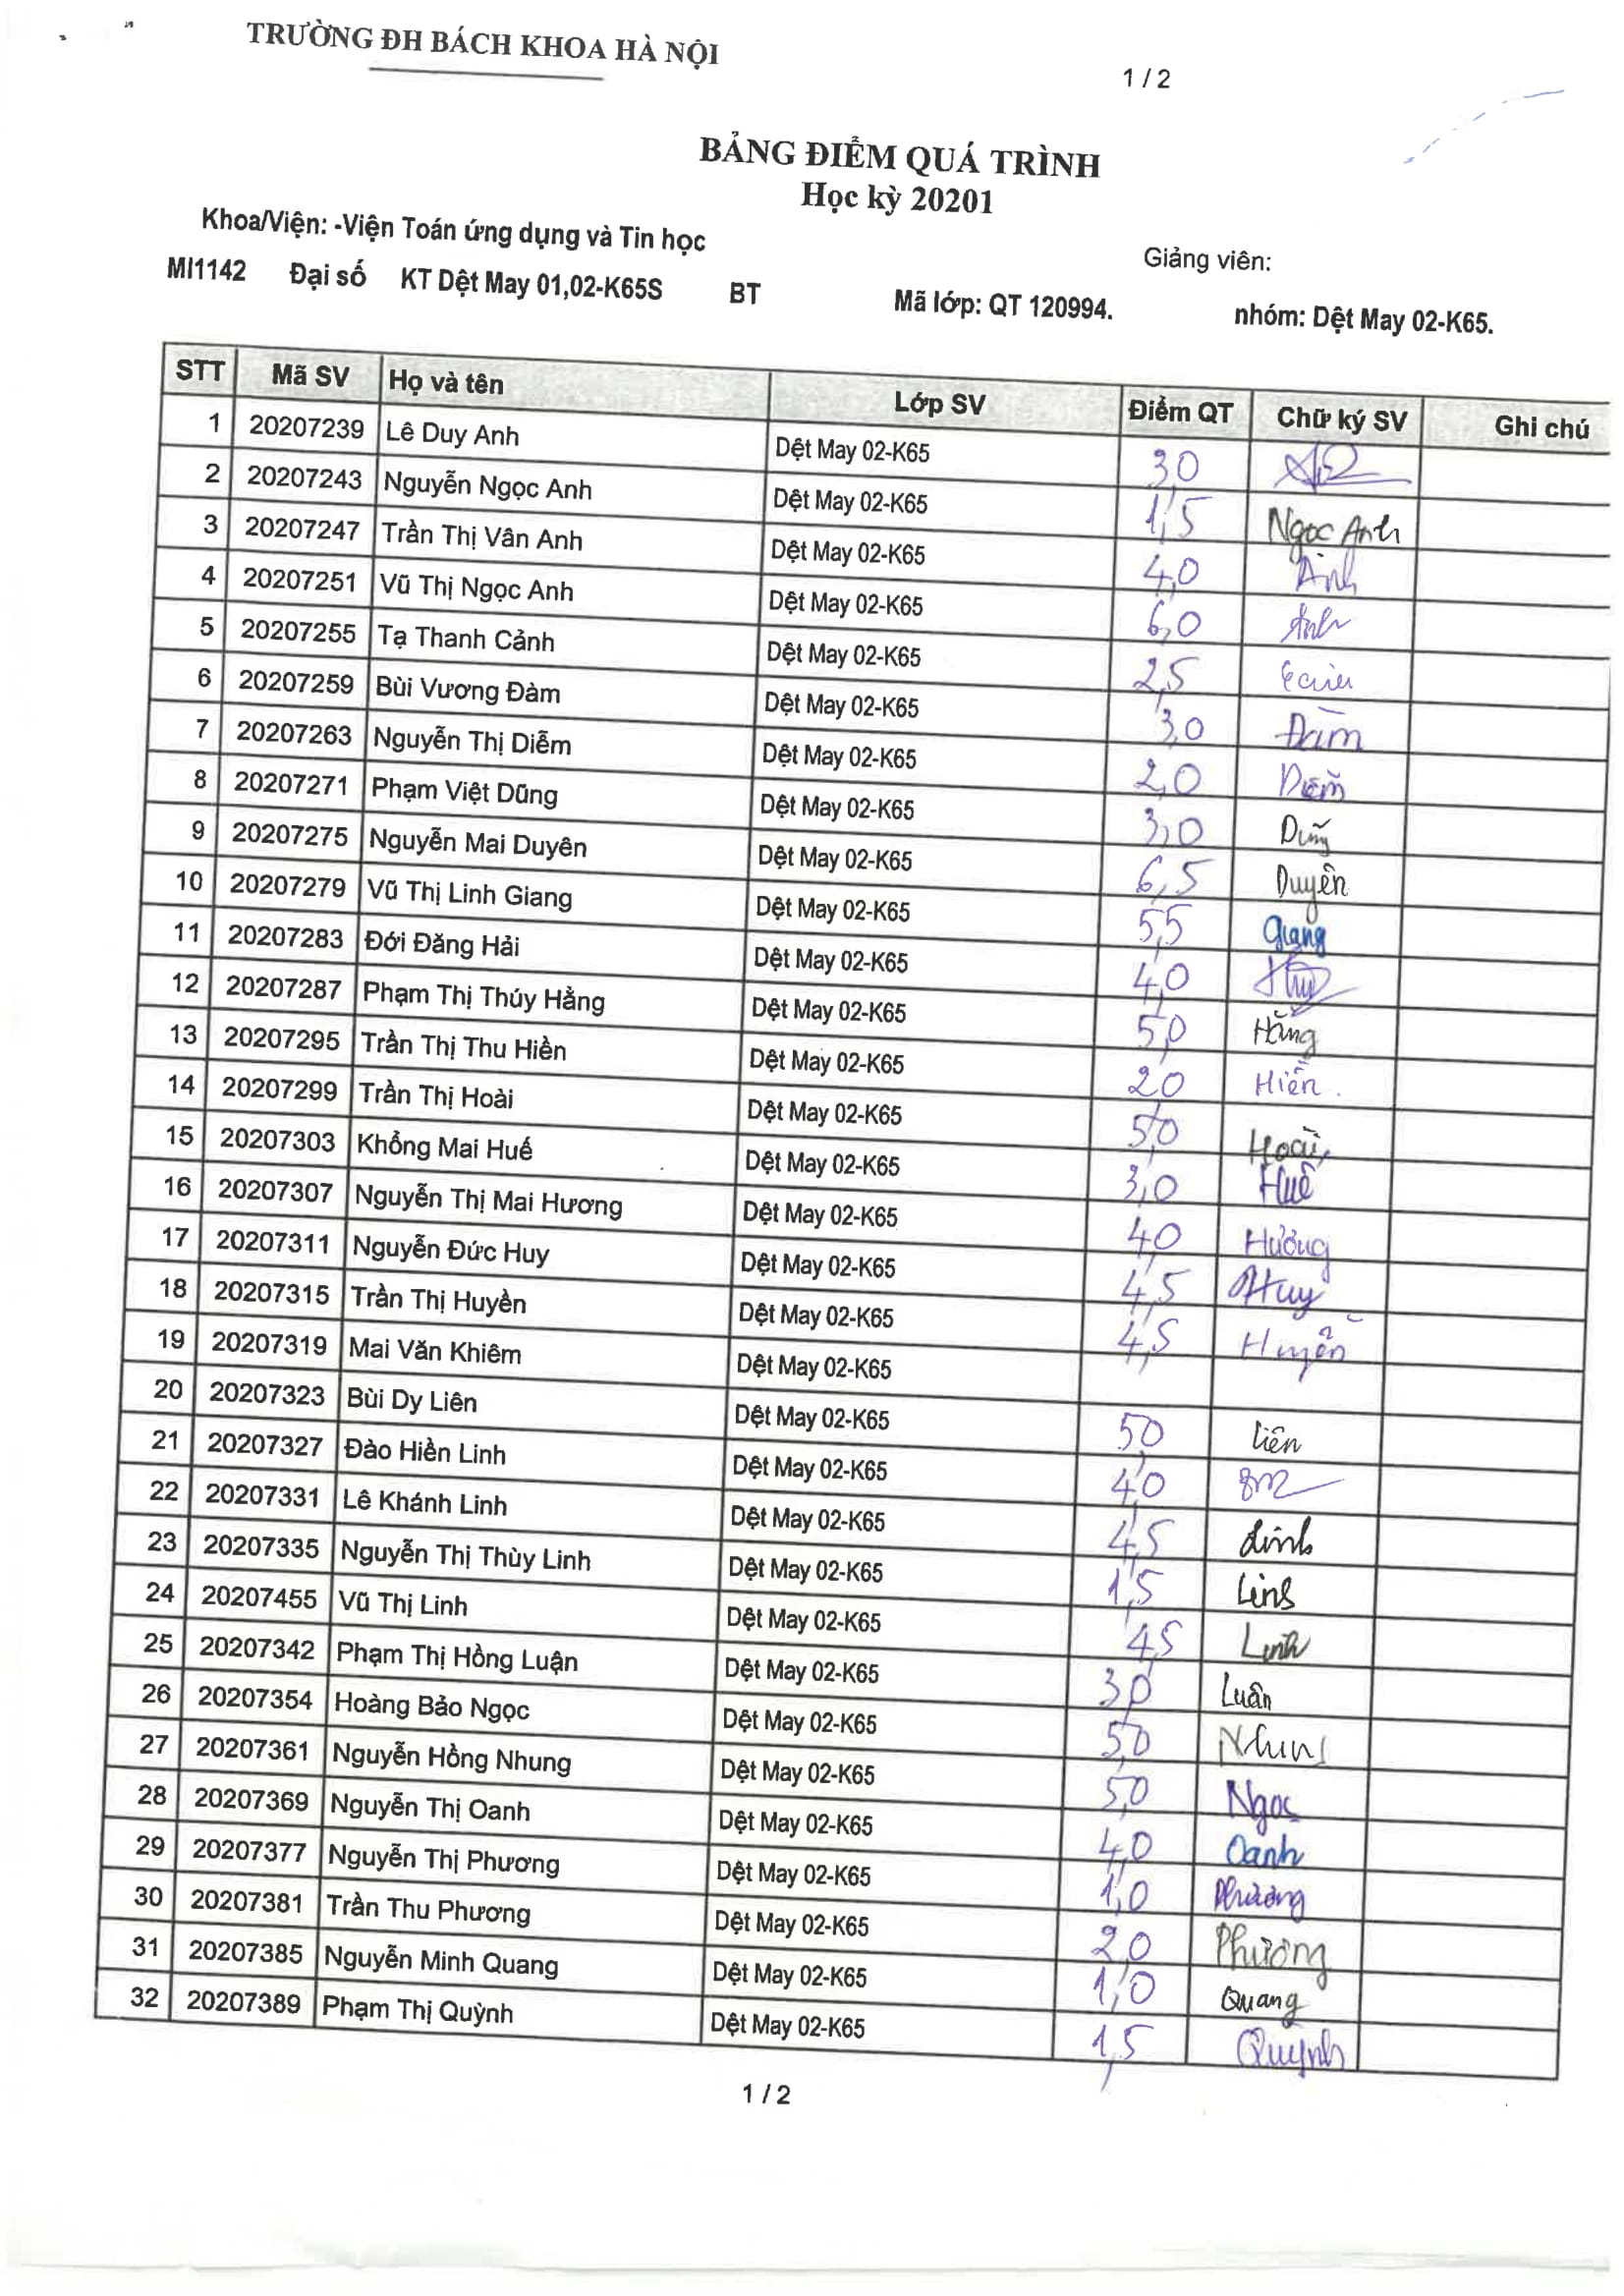 TRƯỜNG ĐH BÁCH KHOA HÀ NỘI
1 / 2
BẢNG ĐIỂM QUÁ TRÌNH
Học kỳ 20201
Khoa/Viện: -Viện Toán ứng dụng và Tin học
Giảng viên:
MI1142 Đại số KT Dệt May 01,02-K65S BT Mã lớp: QT 120994. nhóm: Dệt May 02-K65.
STT Mã SV Họ và tên Lớp SV Điểm QT Chữ ký SV Ghi chú
1 20207239 Lê Duy Anh Dệt May 02-K65 3,0
2 20207243 Nguyễn Ngọc Anh Dệt May 02-K65 1,5 Ngọc Anh
3 20207247 Trần Thị Vân Anh Dệt May 02-K65 4,0 Anh
4 20207251 Vũ Thị Ngọc Anh Dệt May 02-K65 6,0 Anh
5 20207255 Tạ Thanh Cảnh Dệt May 02-K65 2,5
6 20207259 Bùi Vương Đàm Dệt May 02-K65 3,0 Đàm
7 20207263 Nguyễn Thị Diễm Dệt May 02-K65 2,0 Diễm
8 20207271 Phạm Việt Dũng Dệt May 02-K65 3,0 Dũng
9 20207275 Nguyễn Mai Duyên Dệt May 02-K65 6,5 Duyên
10 20207279 Vũ Thị Linh Giang Dệt May 02-K65 5,5 Giang
11 20207283 Đới Đăng Hải Dệt May 02-K65 4,0
12 20207287 Phạm Thị Thúy Hằng Dệt May 02-K65 5,0 Hằng
13 20207295 Trần Thị Thu Hiền Dệt May 02-K65 2,0 Hiền.
14 20207299 Trần Thị Hoài Dệt May 02-K65 5,0 Hoài
15 20207303 Khổng Mai Huế Dệt May 02-K65 3,0 Huế
16 20207307 Nguyễn Thị Mai Hương Dệt May 02-K65 4,0 Hương
17 20207311 Nguyễn Đức Huy Dệt May 02-K65 4,5 Huy
18 20207315 Trần Thị Huyền Dệt May 02-K65 4,5 Huyền
19 20207319 Mai Văn Khiêm Dệt May 02-K65
20 20207323 Bùi Dy Liên Dệt May 02-K65 5,0 Liên
21 20207327 Đào Hiền Linh Dệt May 02-K65 4,0
22 20207331 Lê Khánh Linh Dệt May 02-K65 4,5 Linh
23 20207335 Nguyễn Thị Thùy Linh Dệt May 02-K65 1,5 Linh
24 20207455 Vũ Thị Linh Dệt May 02-K65 4,5 Linh
25 20207342 Phạm Thị Hồng Luận Dệt May 02-K65 3,0 Luận
26 20207354 Hoàng Bảo Ngọc Dệt May 02-K65 5,0 Nhung
27 20207361 Nguyễn Hồng Nhung Dệt May 02-K65 5,0 Ngọc
28 20207369 Nguyễn Thị Oanh Dệt May 02-K65 4,0 Oanh
29 20207377 Nguyễn Thị Phương Dệt May 02-K65 1,0 Phương
30 20207381 Trần Thu Phương Dệt May 02-K65 2,0 Phương
31 20207385 Nguyễn Minh Quang Dệt May 02-K65 1,0 Quang
32 20207389 Phạm Thị Quỳnh Dệt May 02-K65 1,5 Quỳnh
1 / 2